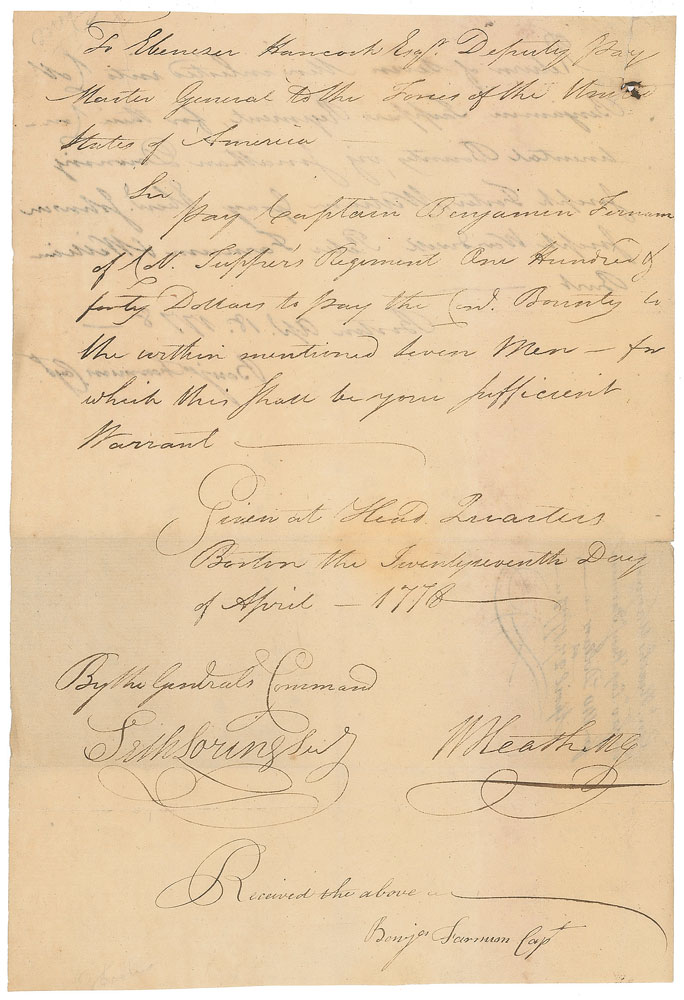 To Ebenezer Hancock Esqr. Deputy Pay
Master General to the Forces of the United
States of America
Sir
Pay Captain Benjamin Fernam
of Col. Tupper's Regiment One Hundred &
forty Dollars to pay the Cont. Bounty to
the within mentioned Seven Men — for
which this shall be your sufficient
Warrant
Given at Head Quarters
Boston the Twentyseventh Day
of April — 1778
By the Generals Command
Seth Loring Secy
W Heath M G
Received the above
Benjan Farnum Capt